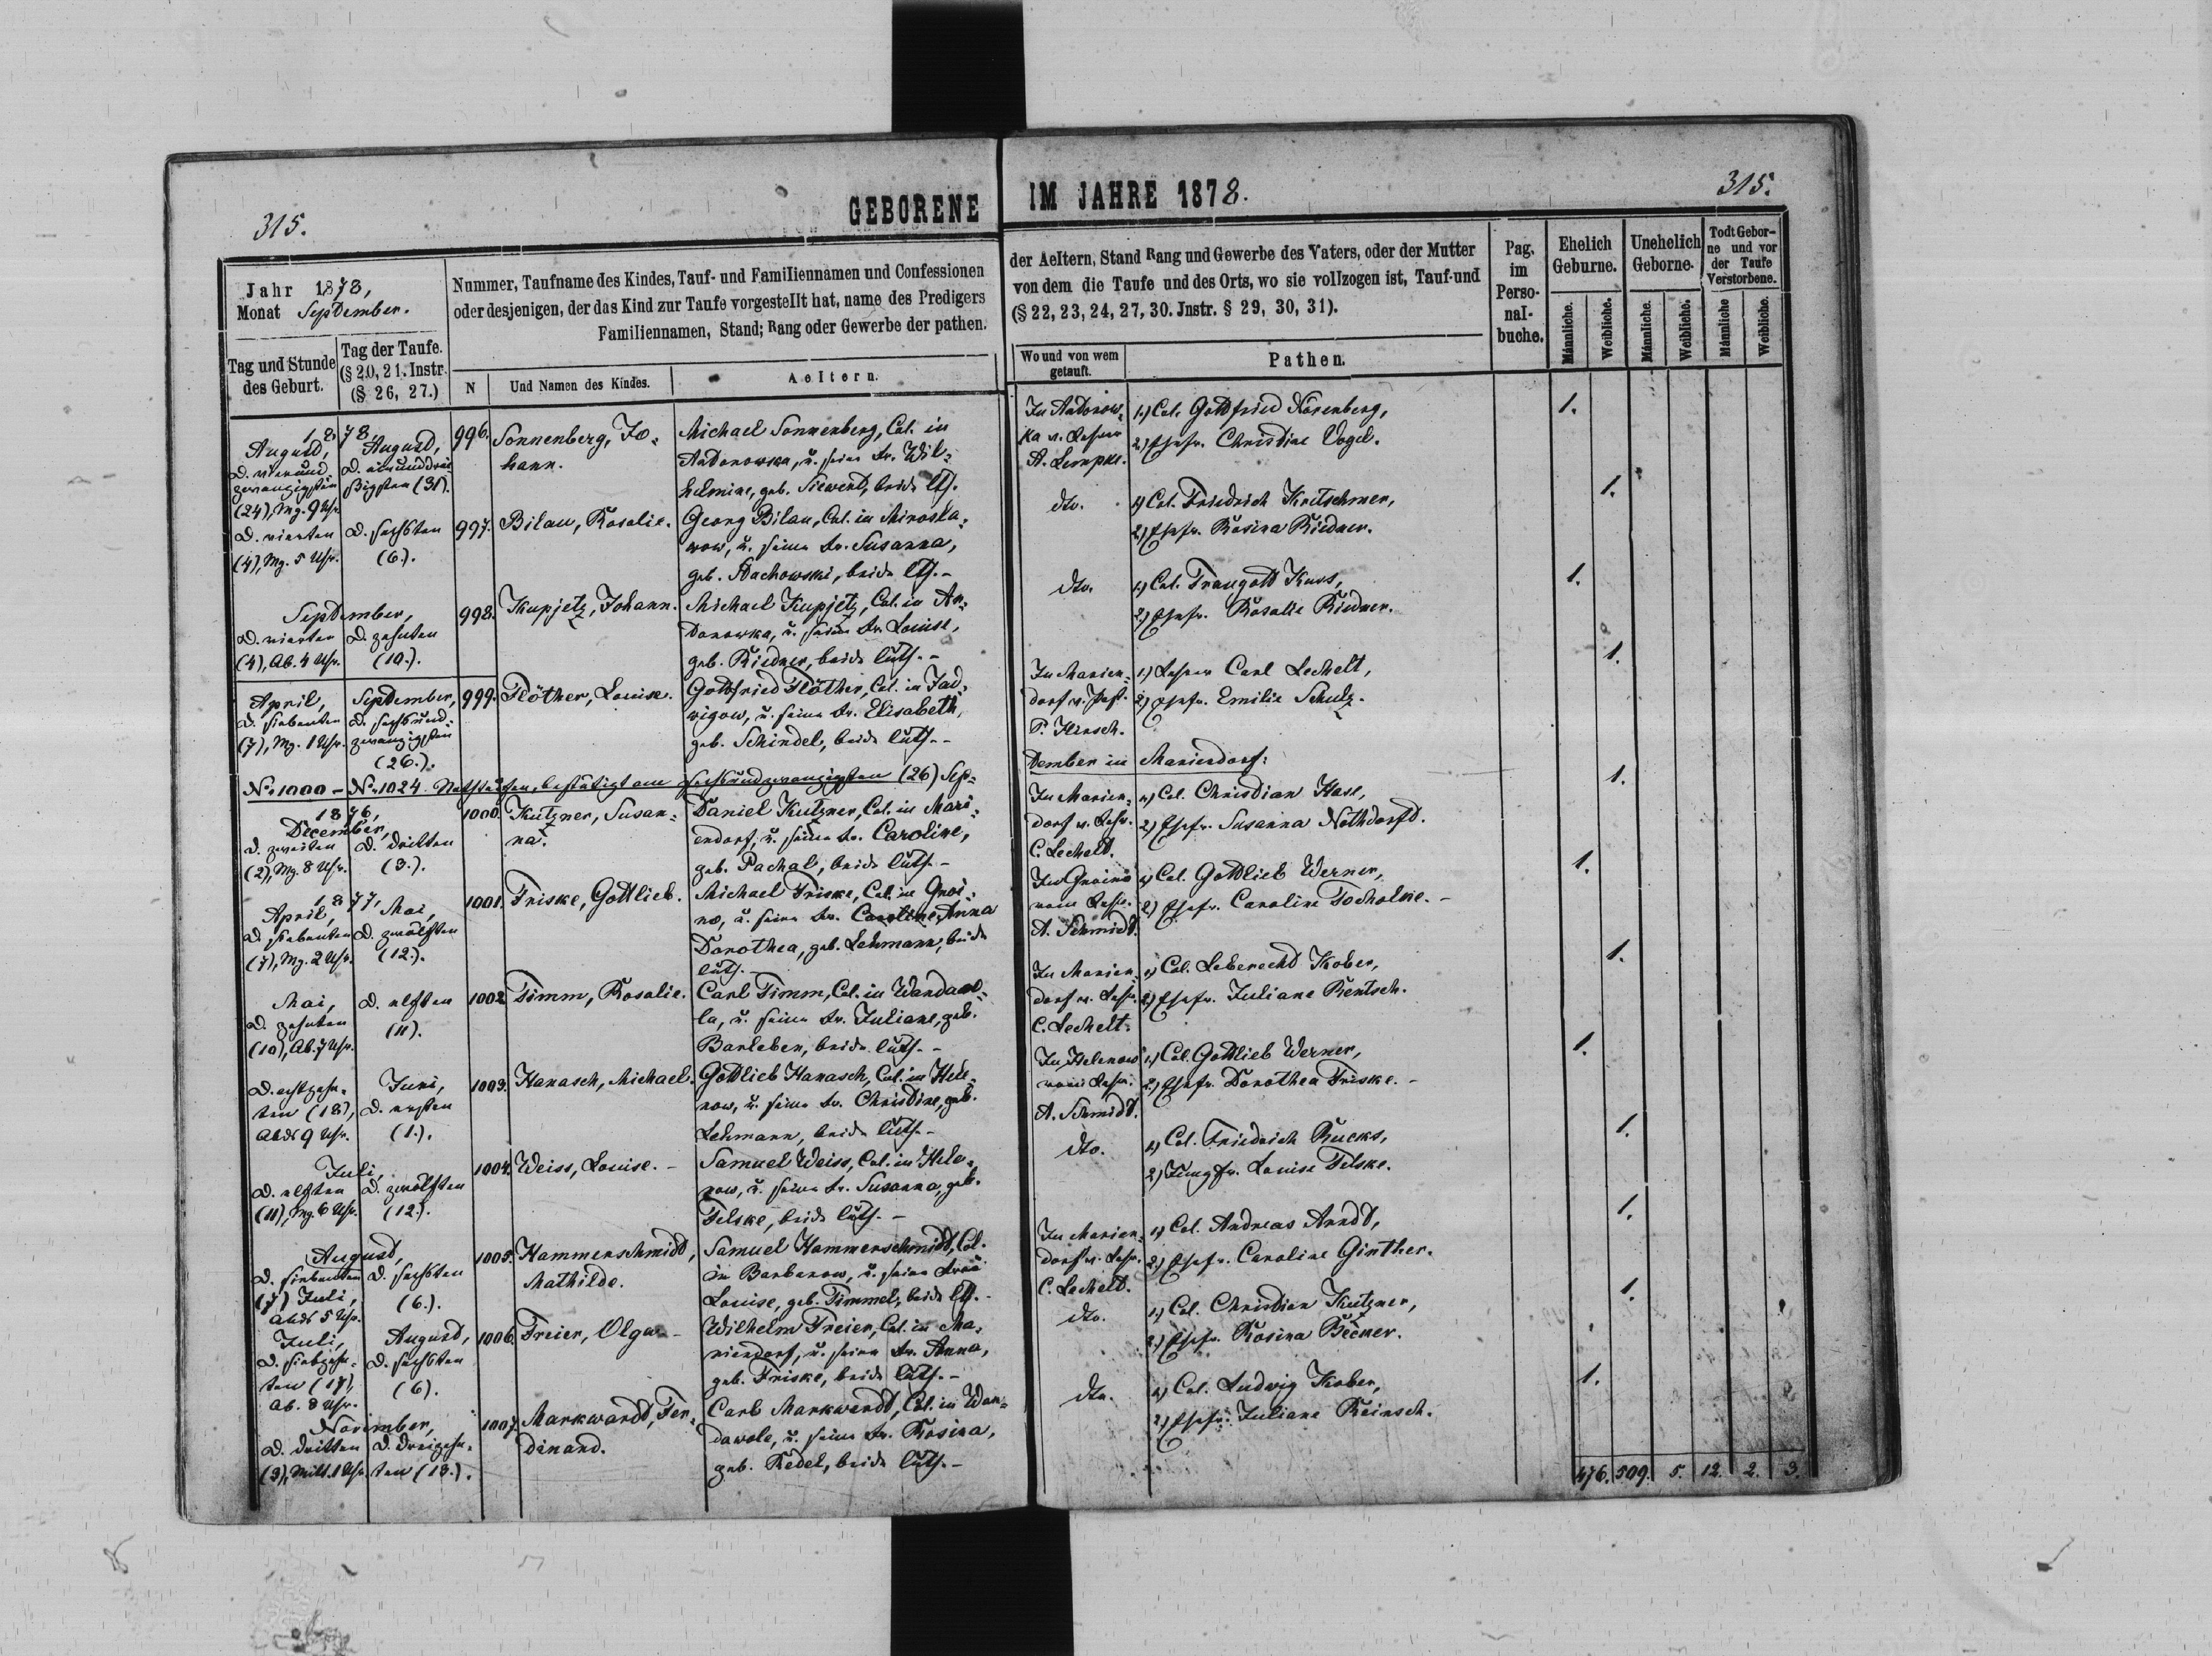 315.
GEBORENE
IM JAHRE 1878.
315.
Jahr 1878,
Monat September.
Tag und Stunde
des Geburt.
Tag der Taufe.
(§ 20, 21. Instr.
(§ 26, 27.)
Nummer, Taufname des Kindes, Tauf- und Familiennamen und Confessionen
oder desjenigen, der das Kind zur Taufe vorgestellt hat, name des Predigers
Familiennamen, Stand; Rang oder Gewerbe der pathen.
N
Und Namen des Kindes.
Aeltern.
der Aeltern, Stand Rang und Gewerbe des Vaters, oder der Mutter
von dem die Taufe und des Orts, wo sie vollzogen ist, Tauf-und
(§ 22, 23, 24, 27, 30. Jnstr. § 29, 30, 31).
Wo und von wem
getauft.
Pathen.
Pag.
im
Perso-
nal-
buche.
Ehelich
Geburne.
Unehelich
Geborne.
Todt Gebor-
ne und vor
der Taufe
Verstorbene.
Männliche.
Weibliche.
Männliche.
Weibliche.
Männliche
Weibliche.
1878
August,
d. vierund
zwanzigsten
(24), Mg. 9 Uhr.
August,
d. einunddrei
ßigsten (31).
996.
Sonnenberg, Jo-
hann.
Michael Sonnenberg, Col. in
Antonowka, u. seine Fr. Wil-
helmine, geb. Siewert, beide lth.
In Antonow-
ka v. Lehrer
A. Lempke.
1.) Col. Gottfried Rosenberg,
2.) Ehefr. Christine Vogel.
1.
d. vierten
(4), Mg. 5 Uhr.
d. sechsten
(6.).
997.
Bilau, Rosalie.
Georg Bilau, Col. in Mirosla-
wow, u. seine Fr. Susanna,
geb. Stachowski, beide lth. -
dto.
1.) Col. Friedrich Kretschmer,
2.) Ehefr. Rosina Riedner.
1.
September,
d. vierten
(4), Ab. 4 Uhr.
d. zehnten
(10.).
998.
Kupjetz, Johann.
Michael Kupjetz, Col. in An-
tonowka, u. seine Fr. Louise,
geb. Riedner, beide luth. -
dto.
1.) Col. Traugott Kuss,
2.) Ehefr. Rosalie Riedner.
1.
April,
d. siebenten
(7), Mg. 1 Uhr.
September,
d. sechsund-
zwanzigsten
(26.).
999.
Flöther, Louise.
Gottfried Flöther, Col. in Jad-
wigow, u. seine Fr. Elisabeth,
geb. Schindel, beide luth. -
In Marien-
dorf v. Past.
P.
1.) Lehrer Carl Lechelt,
2.) Ehefr. Emilie Schulz.
1.
No. 1000 - No. 1024. Nothtaufen, bestätigt am sechsundzwanzigsten (26) Sep-
tember in Mariendorf:
1876,
December,
d. zweiten
(2), Mg. 8 Uhr.
d. dritten
(3.).
1000.
Kutzner, Susan-
na.
Daniel Kutzner, Col. in Mari-
endorf, u. seine Fr. Caroline,
geb. Pachal, beide luth. -
In Marien-
dorf v. Lehr.
C. Lechelt.
1.) Col. Christian Hase,
2.) Ehefr. Susanna Nothdorft.
1.
1877,
April,
d. siebenten
(7), Mg. 2 Uhr.
Mai,
d. zwölften
(12.).
1001.
Friske, Gottlieb.
Michael Friske, Col. in Groi-
no, u. seine Fr. Caroline Anna
Dorothea, geb. Lehmann, beide
luth. -
In Groino
vom Lehr.
A. Schmidt.
1.) Col. Gottlieb Werner,
2.) Ehefr. Caroline Tocholke. -
1.
Mai,
d. zehnten
(10), Ab. 7 Uhr.
d. elften
(11).
1002.
Timm, Rosalie.
Carl Timm, Col. in Wandawo-
la, u. seine Fr. Juliane, geb.
Barleben, beide luth. -
In Marien-
dorf v. Lehr.
C. Lechelt.
1.) Col. Leberecht Kober,
2.) Ehefr. Juliane Rentsch.
1.
d. achtzehn-
ten (18),
Abds 9 Uhr.
Juni,
d. ersten
(1.).
1003.
Hanasch, Michael.
Gottlieb Hanasch, Col. in Hele-
now, u. seine Fr. Christine, geb.
Lehmann, beide luth. -
In Helenow
vom Lehr.
A. Schmidt.
1.) Col. Gottlieb Werner,
2.) Ehefr. Dorothea Friske. -
1.
Juli,
d. elften
(11), Mg. 6 Uhr.
d. zwölften
(12.).
1004.
Weiss, Louise. -
Samuel Weiss, Col. in Hele-
now, u. seine Fr. Susanna, geb.
Felske, beide luth. -
dto.
1.) Col. Friedrich Rucks,
2.) Jungfr. Louise Felske.
1.
August,
d. siebenten
(7) Juli,
Abds 5 Uhr.
d. sechsten
(6.).
1005.
Hammerschmidt,
Mathilde.
Samuel Hammerschmidt, Col.
in Barbarow, u. seine Frau
Louise, geb. Timmel, beide lth. -
In Marien-
dorf v. Lehr.
C. Lechelt.
1.) Col. Andreas Arndt,
2.) Ehefr. Caroline Ginther.
1.
Juli,
d. siebzehn-
ten (17),
Ab. 8 Uhr.
August,
d. sechsten
(6).
1006.
Freier, Olga. -
Wilhelm Freier, Col. in Ma-
riendorf, u. seine Fr. Anna,
geb. Friske, beide luth. -
dto.
1.) Col. Christian Kutzner,
2.) Ehefr. Rosina Becker.
1.
November,
d. dritten
(3), Mitt. 1 Uhr.
d. dreizehn-
ten (13.).
1007.
Markwardt, Fer-
dinand.
Carl Markwardt, Col. in Wan-
dawola, u. seine Fr. Rosina,
geb. Redel, beide luth. -
dto.
1.) Col. Ludwig Kober,
2.) Ehefr. Juliane Reinsch.
1.
476. 509. 5. 12. 2. 3.